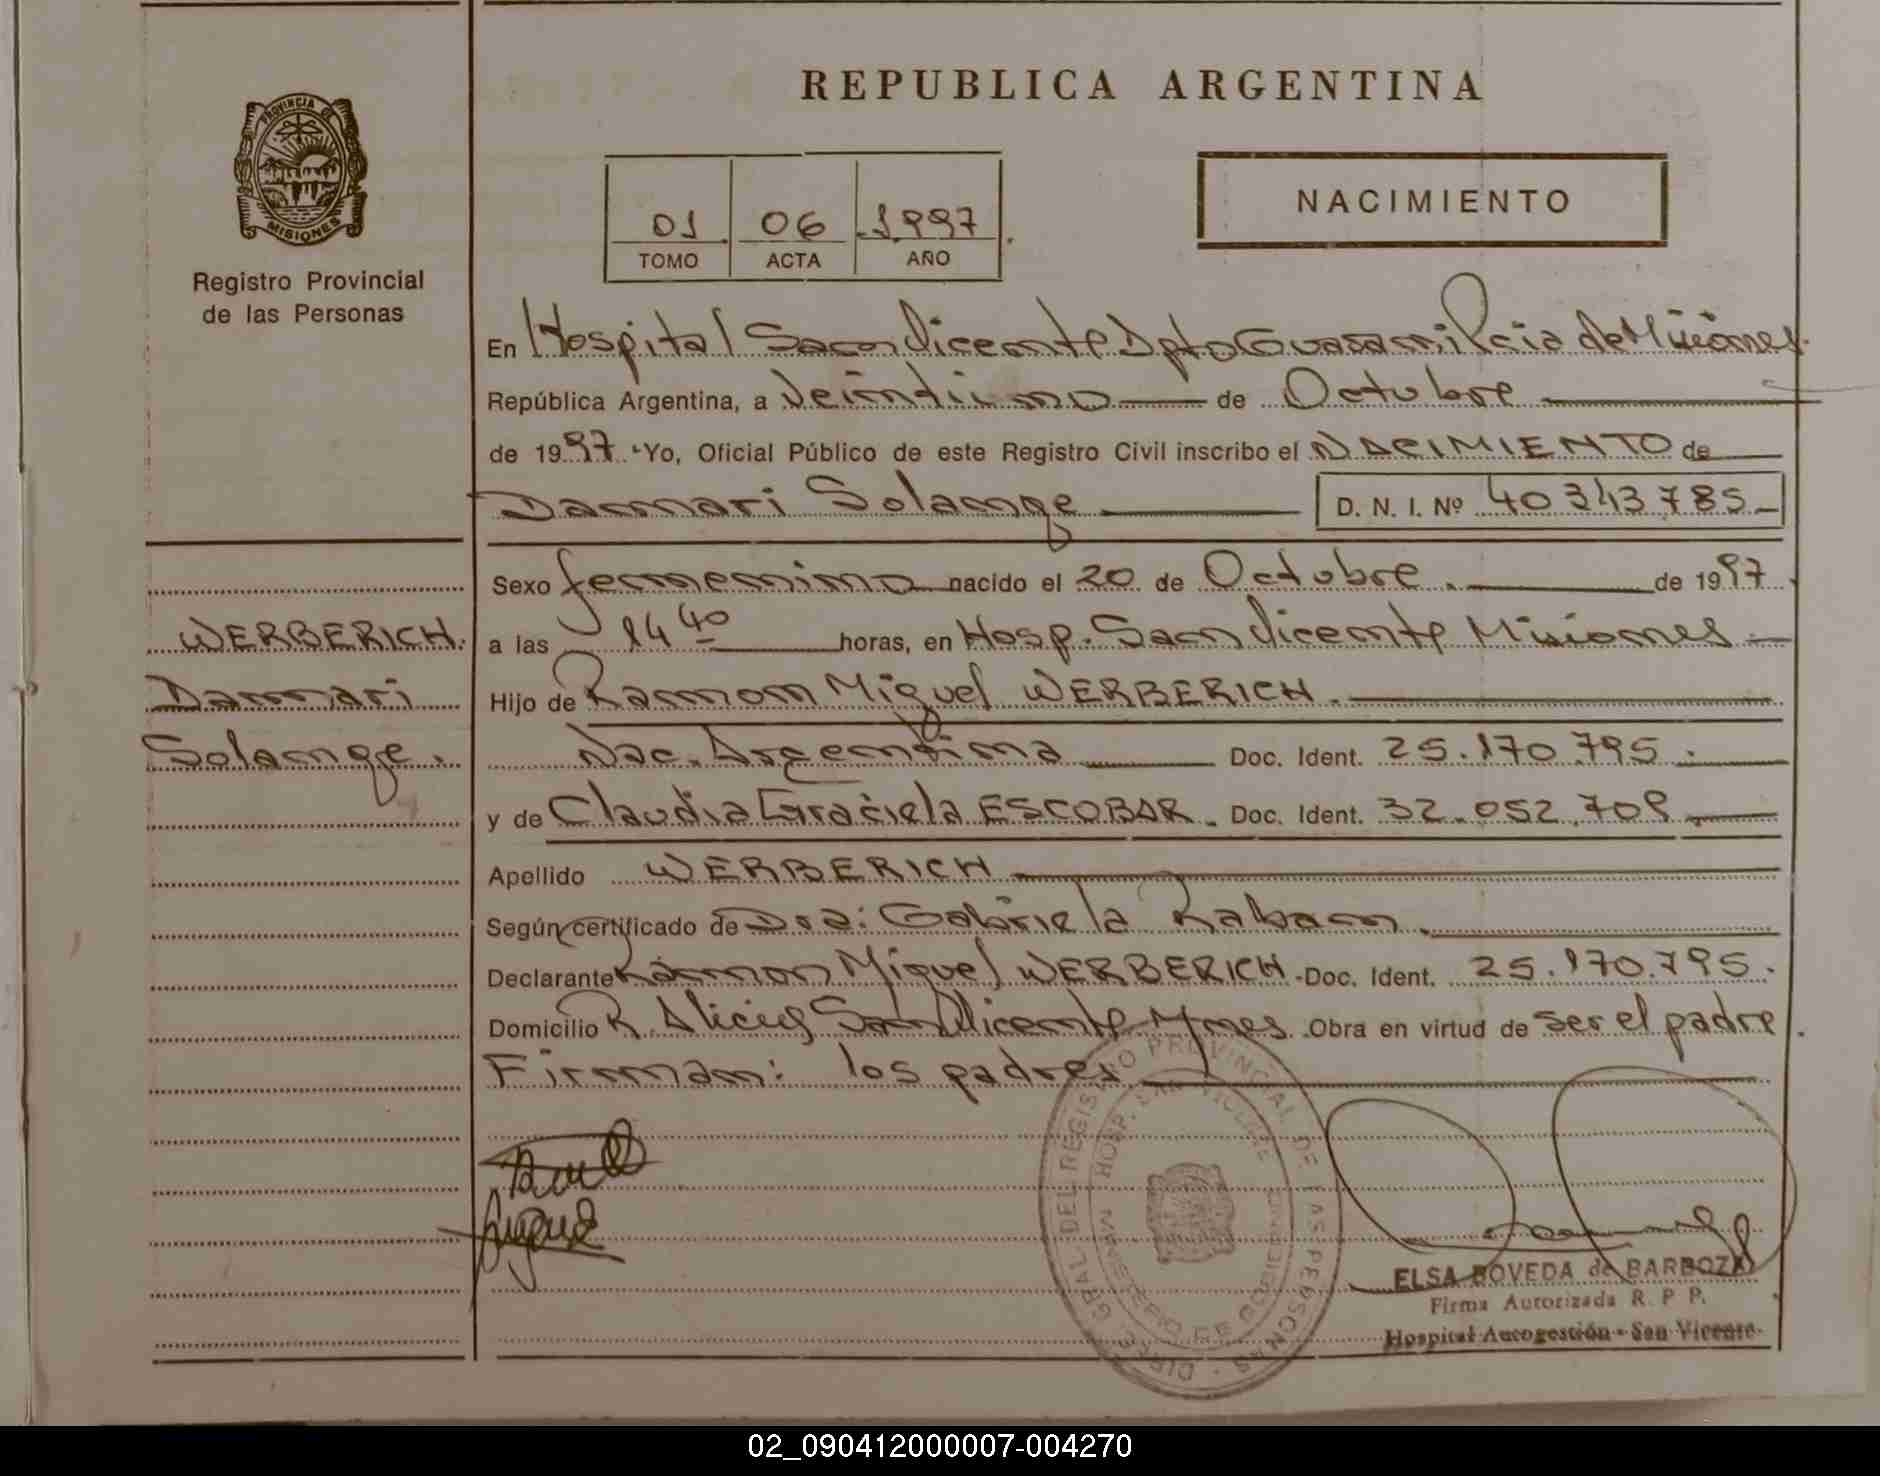 REPUBLICA ARGENTINA
PROVINCIA DE
MISIONES
Registro Provincial
de las Personas
01 06 1997
TOMO ACTA AÑO
NACIMIENTO
En Hospital San Vicente Dpto Guarani Pcia de Misiones.
República Argentina, a Veintiuno de Octubre
de 1997. Yo, Oficial Público de este Registro Civil inscribo el NACIMIENTO de
Dammari Solange D. N. I. Nº 40 343 785
WERBERICH.
Dammari
Solange.
Sexo femenino nacido el 20 de Octubre. de 1997
a las 14 40 horas, en Hosp. San Vicente Misiones
Hijo de Ramon Miguel WERBERICH.
Nac. Argentina Doc. Ident. 25.170.795.
y de Claudia Graciela ESCOBAR. Doc. Ident. 32.052.709
Apellido WERBERICH
Según certificado de Dra: Gabriela Raban.
Declarante Ramon Miguel WERBERICH. Doc. Ident. 25.170.795.
Domicilio San Vicente Mnes. Obra en virtud de ser el padre.
Firman: los padres
DIREC. GRAL. DEL REGISTRO PROVINCIAL DE LAS PERSONAS
HOSP. SAN VICENTE
ELSA BOVEDA de BARBOZA
Firma Autorizada R. P. P.
Hospital Autogestión - San Vicente
02_090412000007-004270